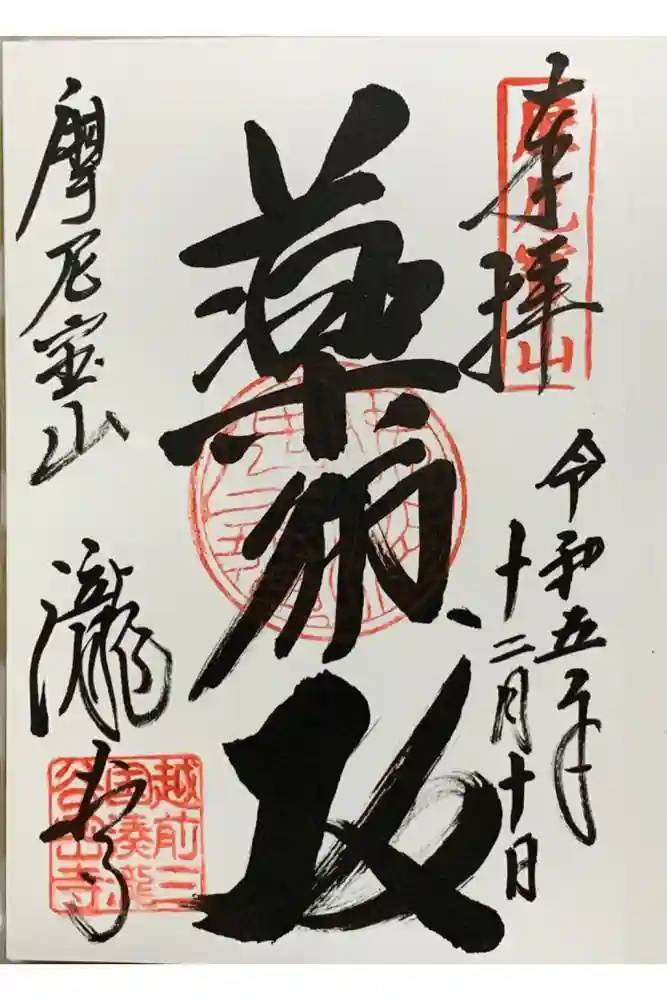 奉拝
摩尼宝山
令和五年
十二月十日
薬師
摩尼宝山
瀧谷寺
越前三
国湊瀧